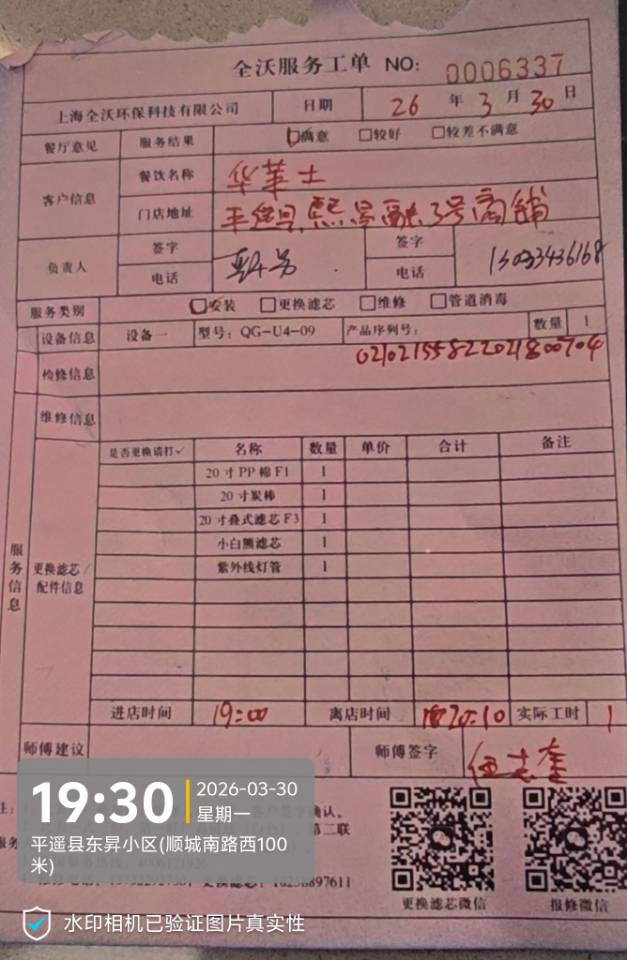 全沃服务工单 NO: 0006337
上海全沃环保科技有限公司 日期 26 年 3 月 30 日
餐厅意见 服务结果 □满意 □较好 □较差不满意
客户信息 餐饮名称 华莱士
门店地址 平遥县熙景融3号商铺
负责人 签字 签字
电话 电话 13033436168
服务类别 □安装 □更换滤芯 □维修 □管道消毒
设备信息 设备一 型号: QG-U4-09 产品序列号: 数量 1
02102155822021800704
检修信息
维修信息
是否更换请打✓ 名称 数量 单价 合计 备注
20寸PP棉F1 1
20寸炭棒 1
20寸叠式滤芯F3 1
小白熊滤芯 1
紫外线灯管 1
服务信息
更换滤芯/
配件信息
进店时间 19:00 离店时间 20:10 实际工时 1
师傅建议 师傅签字 伍志奎
19:30 2026-03-30
星期一
平遥县东昇小区(顺城南路西100
米)
确认。
第二联
更换滤芯微信 报修微信
水印相机已验证图片真实性